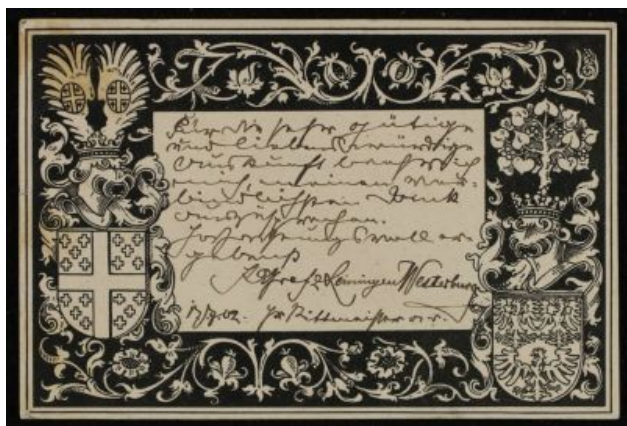 Für die sehr gütige
und liebenswürdige
Auskunft beehre ich
mich meinen ver-
bindlichsten Dank
auszusprechen.
Hochachtungsvoll er-
gebenst
K. E. Graf z. Leiningen Westerburg
17/7.02. Rittmeister a. D.